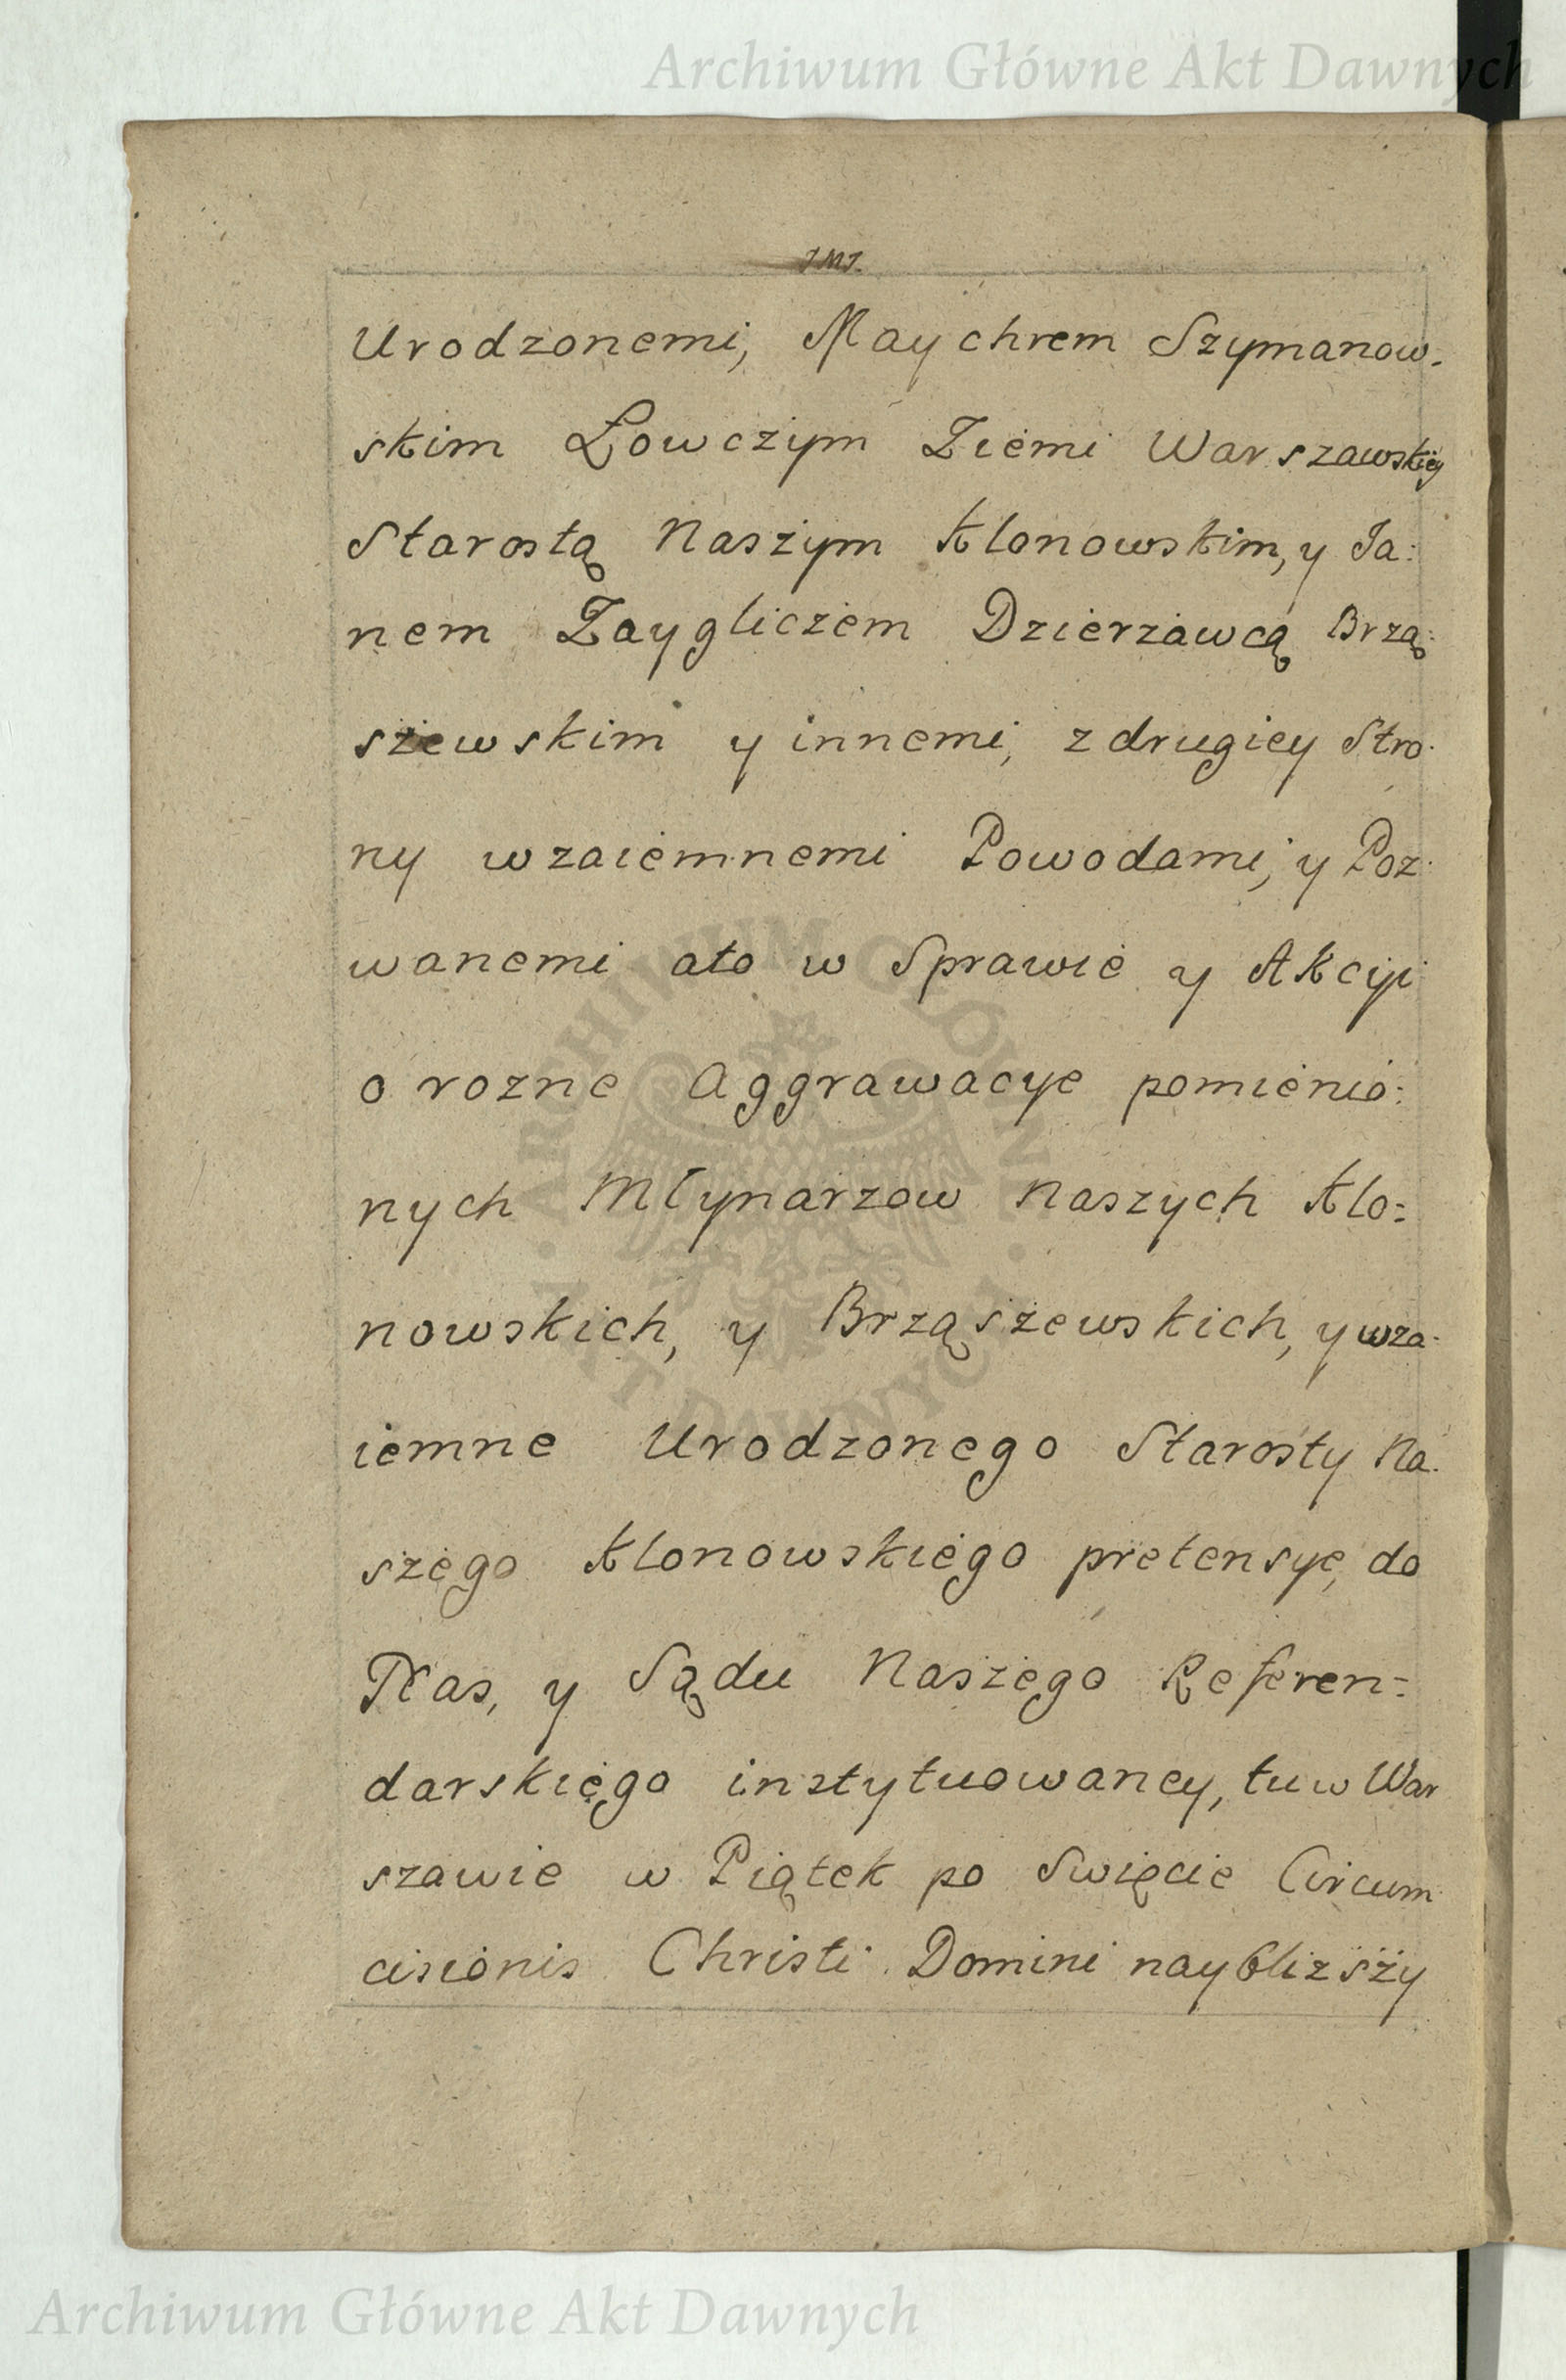 Archiwum Główne Akt Dawnych
JMJ.
Urodzonemi, Maychrem Szymanow-
skim Łowczym Ziemi Warszawskiey
Starostą Naszym Klonowskim, y Ja:
nem Zaygliczem Dzierzawcą Brzą:
szewskim y innemi, z drugiey Stro-
ny wzaiemnemi Powodami, y Poz-
wanemi ato w Sprawie y Akcyi
o rozne Aggrawacye pomienio:
nych Młynarzow Naszych Klo=
nowskich, y Brząszewskich, y wza-
iemne Urodzonego Starosty Na-
szego Klonowskiego pretensye, do
Nas, y Sądu Naszego Referen=
darskiego instytuowaney, tu w War
szawie w Piątek po Swięcie Circum
cisionis Christi Domini naybliższy
ARCHIWUM GŁÓWNE
AKT DAWNYCH
Archiwum Główne Akt Dawnych